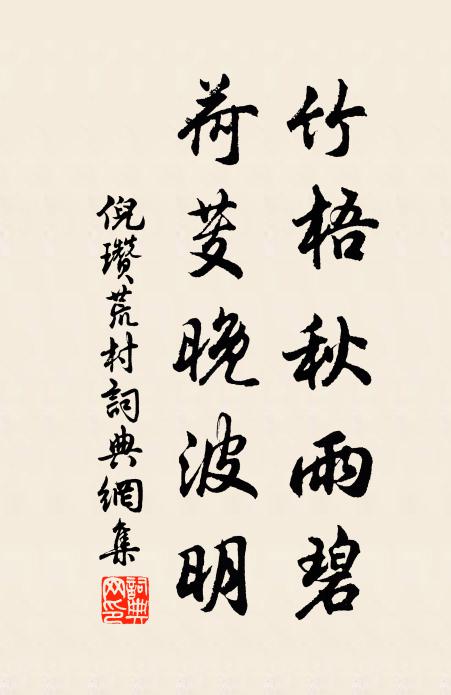 竹梧秋雨碧
荷芰晚波明
倪瓚荒村詞典網集
詞典
网印